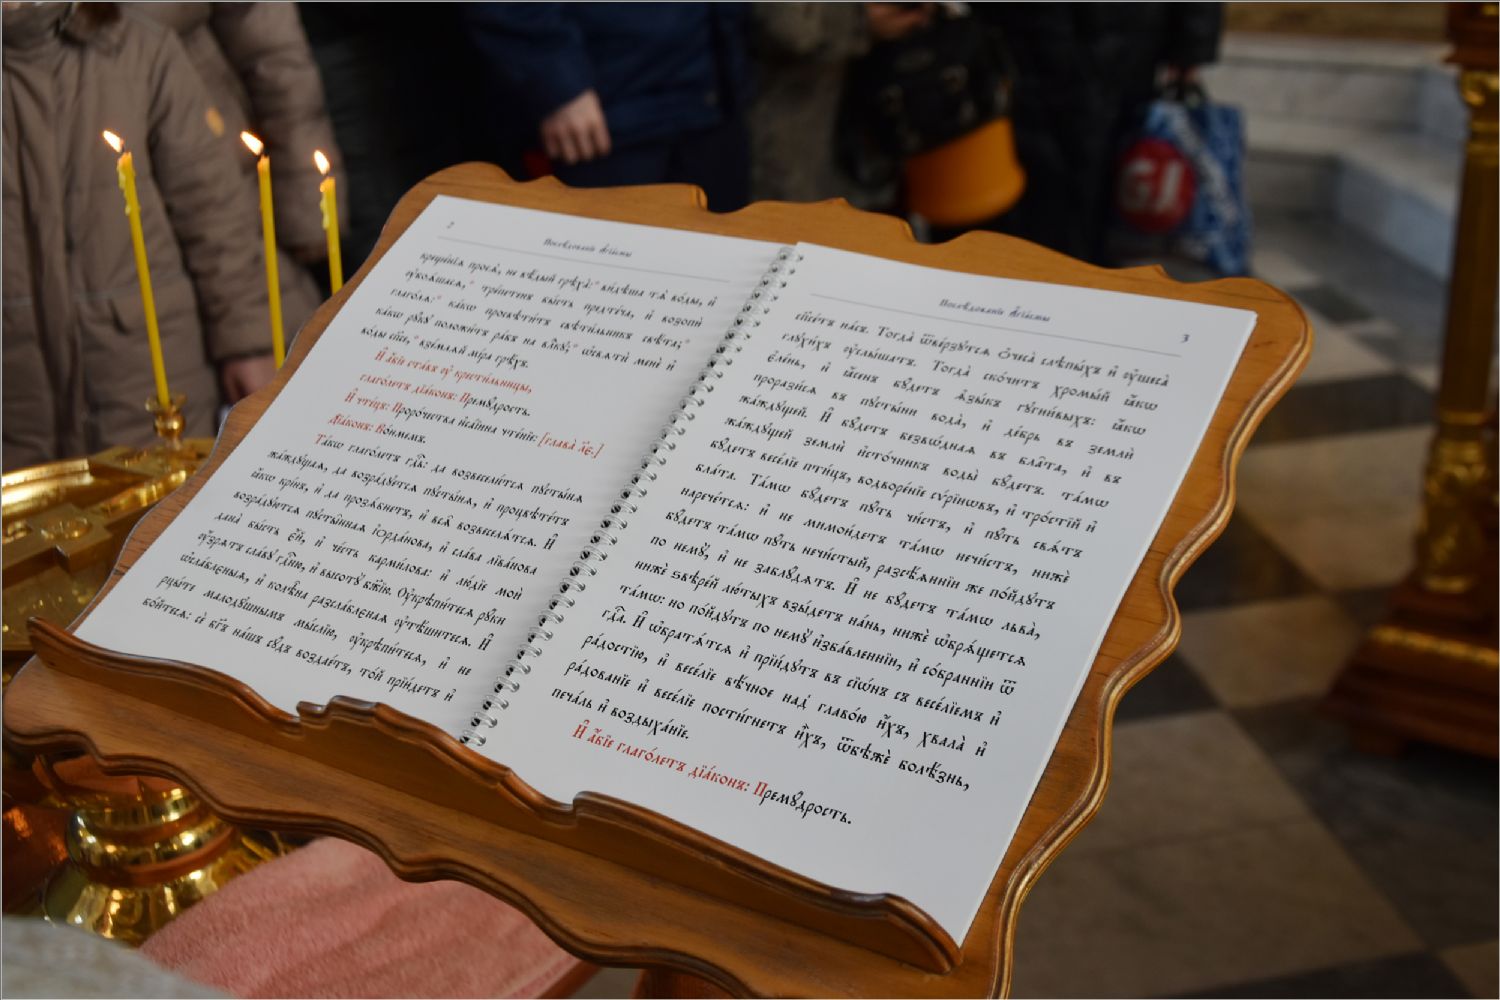 2
Послѣдованїе ѡ҆свѧще́нїѧ
креще́нїѧ просѧ̀, не вѣ́дый грѣха̀: * ви́дѣша тѧ̀ во́ды, и҆
ᲂу҆боѧ́шасѧ, * тре́петенъ бы́сть предте́ча, и҆ возопѝ
глаго́лѧ: * ка́кѡ просвѣти́тъ свѣти́льникъ свѣ́та; *
ка́кѡ рꙋ́кꙋ положи́тъ ра́бъ на влⷣкꙋ; * ѡ҆свѧтѝ менѐ и҆
во́ды сп҃се, * взе́млѧй мі́ра грѣхѝ.
И҆ а҆́бїе ста́въ ᲂу҆ крести́льницы,
глаго́летъ дїа́конъ: Премꙋ́дрость.
И҆ чте́цъ: Проро́чества и҆са́їина чте́нїе: [глава̀ л҃є.]
Дїа́конъ: Во́нмемъ.
Та́кѡ глаго́летъ гдⷭ҇ь: да возвесели́тсѧ пꙋсты́нѧ
жа́ждꙋщаѧ, да возра́дꙋетсѧ пꙋсты́нѧ, и҆ процвѣте́тъ
ꙗ҆́кѡ крі́нъ, и҆ да прозѧ́бнетъ, и҆ всѧ̑ возвеселѧ́тсѧ. И҆
возра́дꙋютсѧ пꙋсты̑ннаѧ і҆ѻрда́нѡва, и҆ сла́ва лїва́нова
дана̀ бы́сть є҆́й, и҆ че́сть карми́лова: и҆ лю́дїе моѝ
ᲂу҆́зрѧтъ сла́вꙋ гдⷭ҇ню, и҆ высотꙋ̀ бж҃їю. Оу҆крѣпи́тесѧ рꙋ́ки
ѡ҆сла́блєныѧ, и҆ кѡлѣ́на разсла́блєнаѧ ᲂу҆тѣ́шитесѧ. И҆
рцы́те малодꙋ́шнымъ мы́слїю, ᲂу҆крѣпи́тесѧ, и҆ не
бо́йтесѧ: сѐ бг҃ъ на́шъ сꙋ́дъ воздае́тъ, то́й прїи́детъ и҆
3
Послѣдованїе ѡ҆свѧще́нїѧ
сп҃се́тъ на́съ. Тогда̀ ѿве́рзꙋтсѧ ѻ҆́чеса̀ слѣпы́хъ и҆ ᲂу҆́шеса̀
глꙋхи́хъ ᲂу҆слы́шатъ. Тогда̀ ско́читъ хромы́й ꙗ҆́кѡ
є҆ле́нь, и҆ ꙗ҆́сенъ бꙋ́детъ ѧ҆зы́къ гꙋгни́выхъ: ꙗ҆́кѡ
прорази́сѧ въ пꙋсты́ни вода̀, и҆ де́брь въ землѝ
жа́ждꙋщей. И҆ бꙋ́детъ безво́днаѧ въ бла̑та, и҆ въ
жа́ждꙋщей землѝ и҆сто́чникъ воды̀ бꙋ́детъ. та́мѡ
бꙋ́детъ весе́лїе пти́цъ, водворе́нїе сѵрі́нѡвъ, и҆ тро́стїй и҆
бла́та. Та́мѡ бꙋ́детъ пꙋ́ть чи́стъ, и҆ пꙋ́ть ст҃ъ
нарече́тсѧ: и҆ не мимои́детъ та́мѡ нечи́стъ, нижѐ
бꙋ́детъ та́мѡ пꙋ́ть нечи́стый, разсѣ́ѧннїи же по́йдꙋтъ
по немꙋ̀, и҆ не заблꙋ́дѧтъ. И҆ не бꙋ́детъ та́мѡ льва̀,
нижѐ ѕвѣре́й лю́тыхъ взы́детъ на́нь, нижѐ ѡ҆брѧ́щетсѧ
та́мѡ: но по́йдꙋтъ по немꙋ̀ и҆зба́вленнїи, и҆ со́браннїи ѿ
гдⷭ҇а. И҆ ѡ҆братѧ́тсѧ и҆ прїи́дꙋтъ въ сїѡ́нъ съ весе́лїемъ и҆
ра́достїю, и҆ весе́лїе вѣ́чное над̾ главо́ю и҆́хъ, хвала̀ и҆
ра́дованїе и҆ весе́лїе пости́гнетъ и҆̀хъ, ѿбѣжѐ болѣ́знь,
печа́ль и҆ воздыха́нїе.
И҆ а҆́бїе глаго́летъ дїа́конъ: Премꙋ́дрость.
GJ